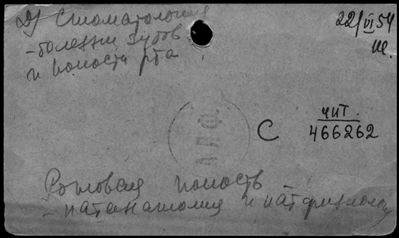 2) Стоматология
- болезни зубов
и полости рта
22/VI 54
чит.
С 466262
АЛФ.
Ротовая полость
- патанатомия и патфизиология